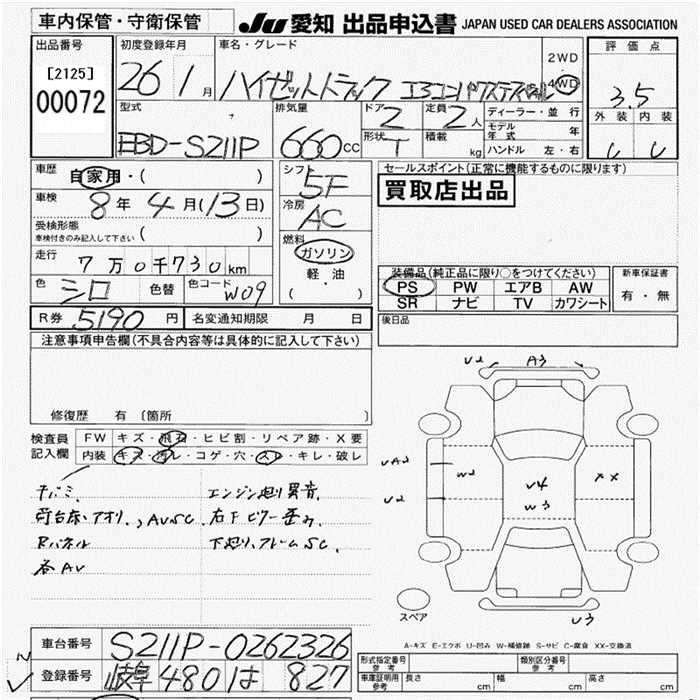 車内保管・守衛保管 JU 愛知 出品申込書 JAPAN USED CAR DEALERS ASSOCIATION
出品番号 初度登録年月 車名・グレード 評価点
[2125] 00072 26 1月 ハイゼットトラック 2WD 4WD 3.5
型式 排気量 ドア 定員 ディーラー・並行 外装 内装
EBD-S211P 660cc 2 2人 モデル年式 年
形状 T 積載 kg ハンドル 左・右
車歴 自家用・( ) シフト 5F セールスポイント(正常に機能するものに限ります)
車検 8年4月(13日) 冷房 AC 買取店出品
受検形態 車検付きのみ記入して下さい ( )
走行 7万0千730km 燃料 ガソリン 軽・油 ( )
装備品(純正品に限り○をつけてください) 新車保証書
PS PW エアB AW 有・無
SR ナビ TV カワシート
色 シロ 色替 色コード W09
R券 5190円 名変通知期限 月 日 後日品
注意事項申告欄(不具合内容等は具体的に記入して下さい)
修復歴 有 〔箇所
検査員記入欄 FW キズ・飛石・ヒビ割・リペア跡・X要
内装 キズ・汚レ・コゲ・穴・スレ・キレ・破レ
A3
W2 XX
V4
W3
荷台床、アオリ、AV SC
エンジン廻り異音
下廻り、フレームSC
Rパネル
各AV
スペア
A-キズ E-エクボ U-凹み W-補修跡 S-サビ C-腐食 XX-交換済
車台番号 S211P-0262326
登録番号 岐阜480は827
形式指定番号 参考 類別区分番号 参考
車庫証明用 参考 長さ cm 幅 cm 高さ cm